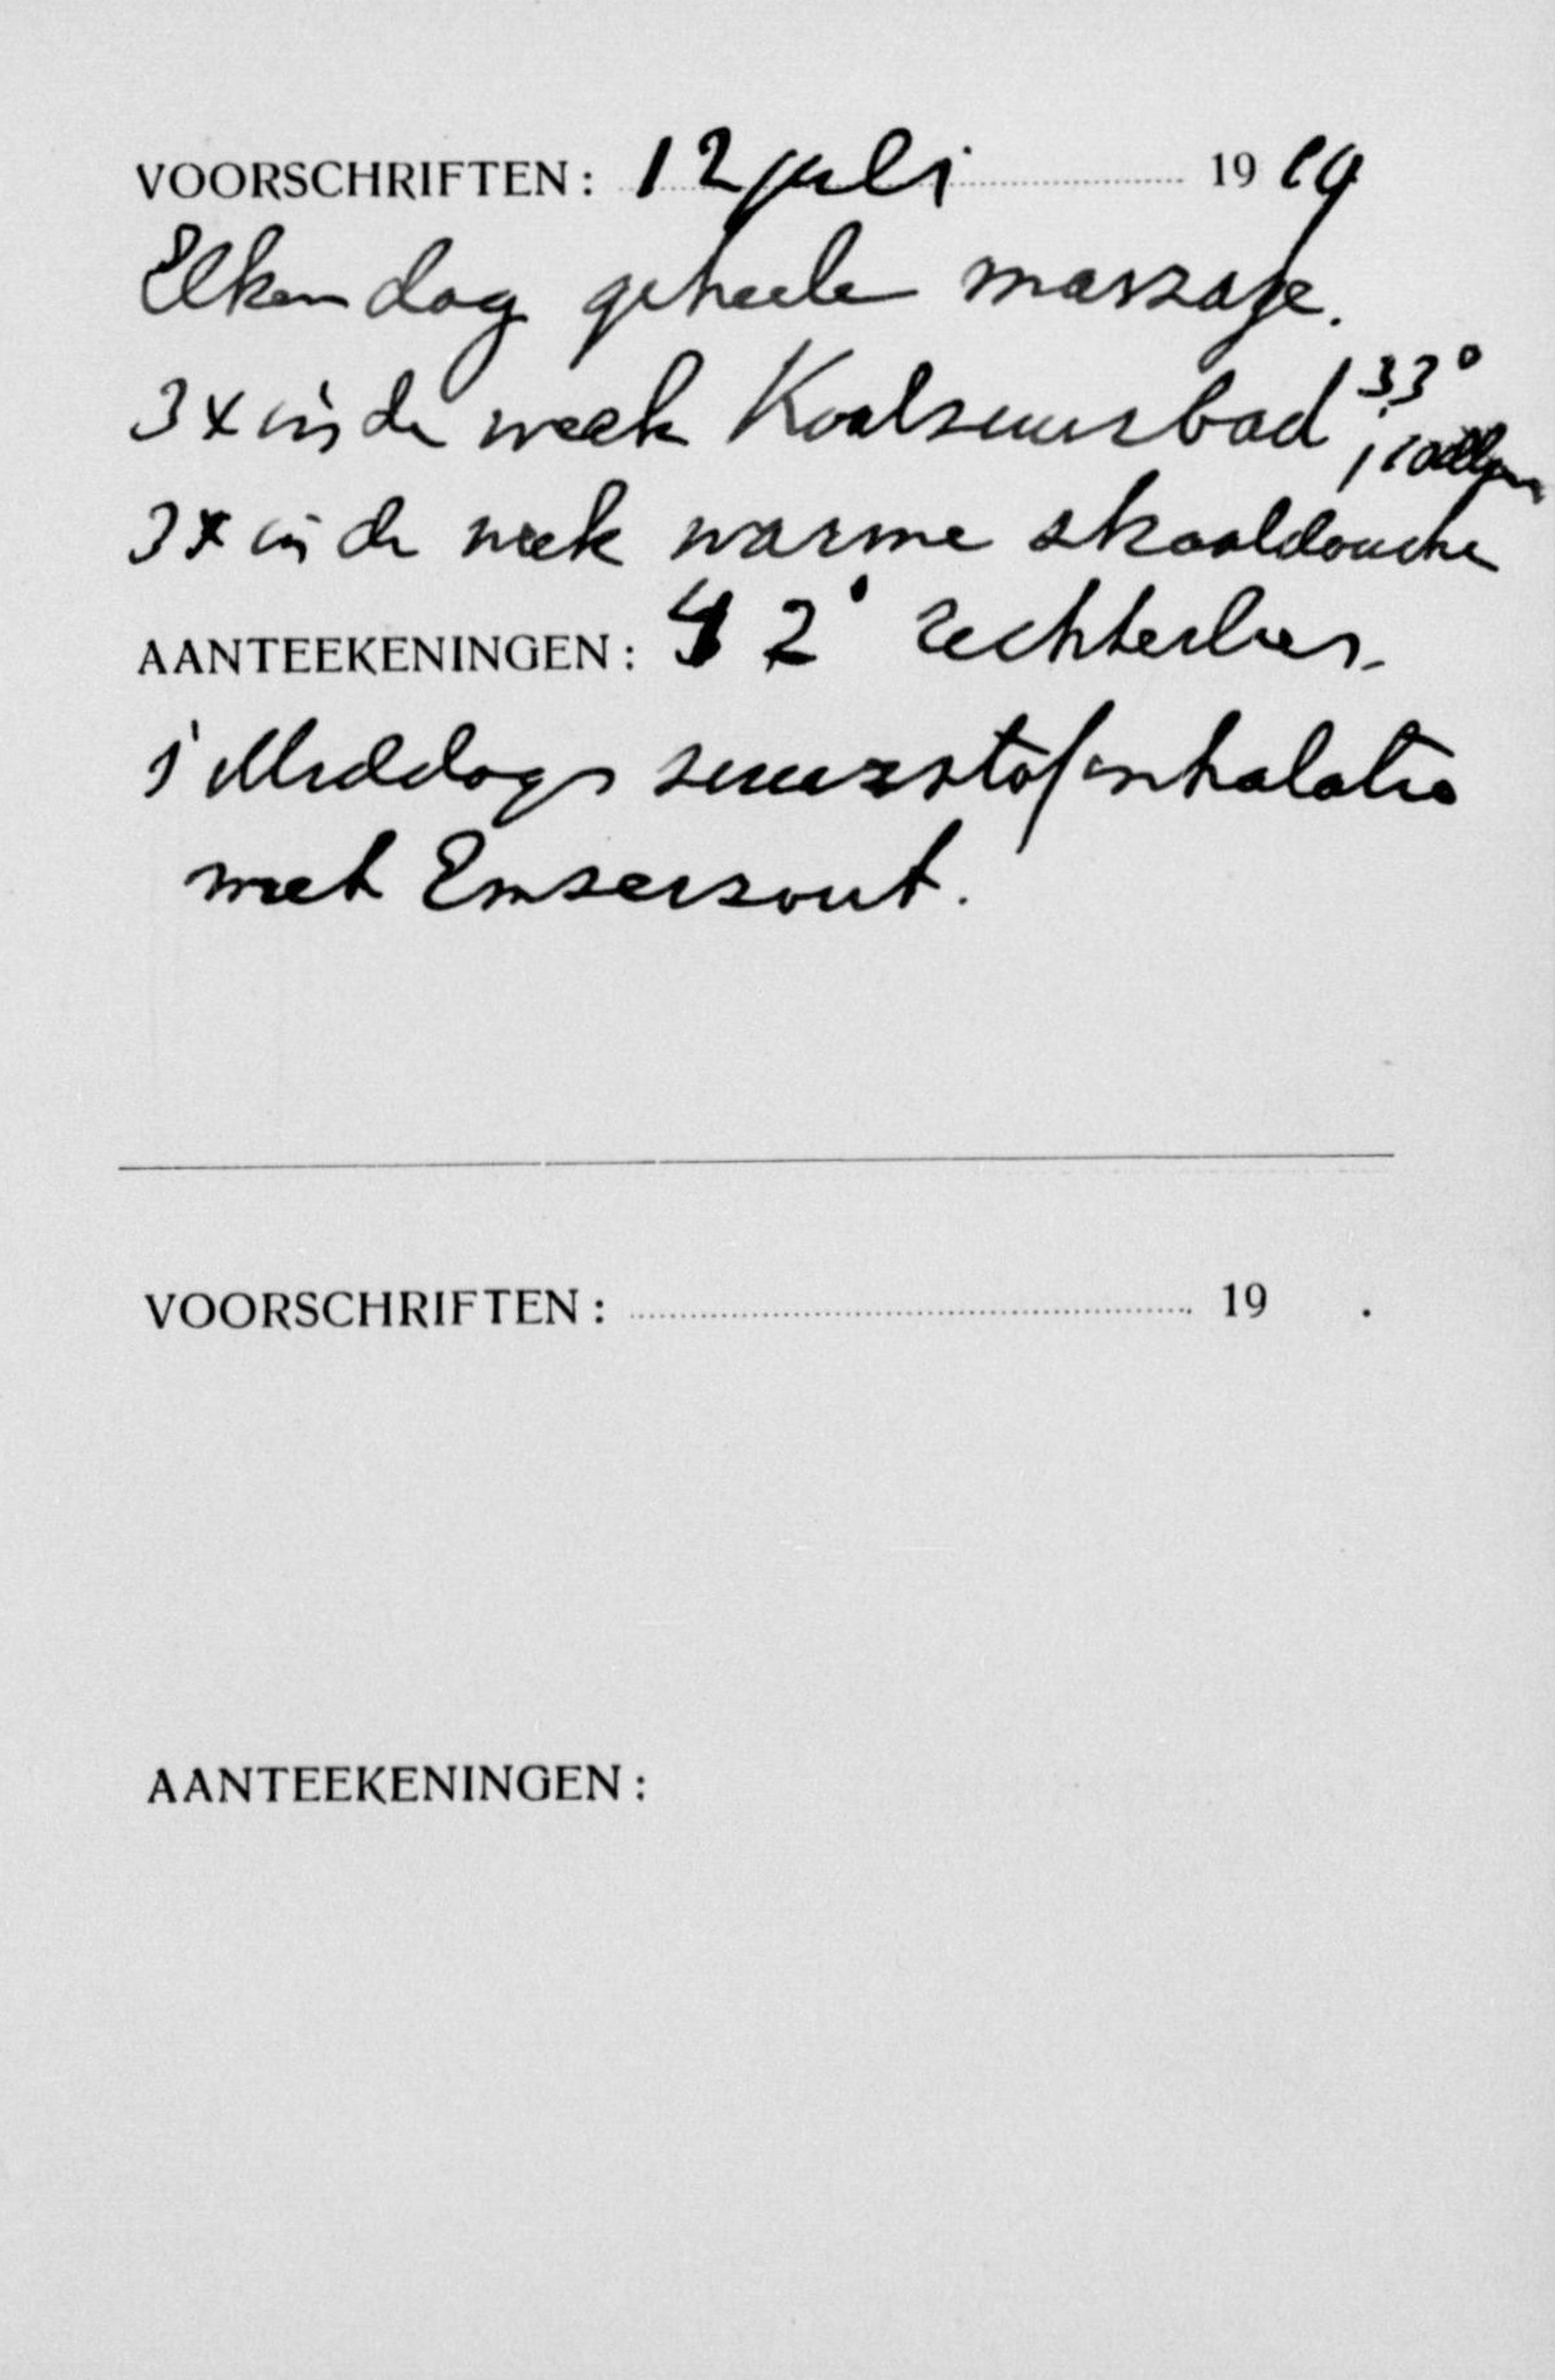 VOORSCHRIFTEN: 12 juli 1919
Elken dag geheele massage.
3x in de week Koolzuurbad 33°
3x in de week warme straaldouche
AANTEEKENINGEN: 42° rechterlies.
s' Middags zuurstofinhalatie
met Emserzout.
VOORSCHRIFTEN: 19 .
AANTEEKENINGEN: